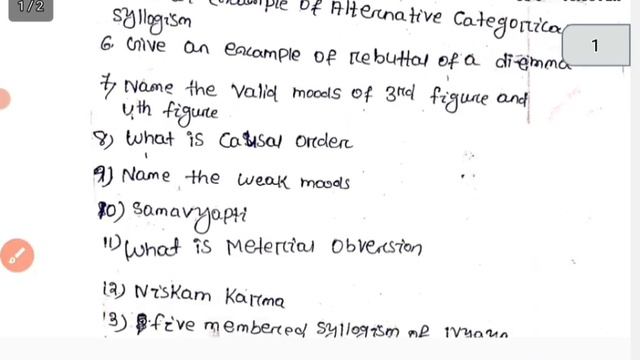 1/2
Example of Alternative Categorica
syllogism
1
6. Give an example of rebuttal of a dilemma
7) Name the valid moods of 3rd figure and
4th figure
8) What is Causal order
9) Name the weak moods
10) Samavyapti
11) What is Meterial Obversion
12) Niskam Karma
13) five membered syllogism of